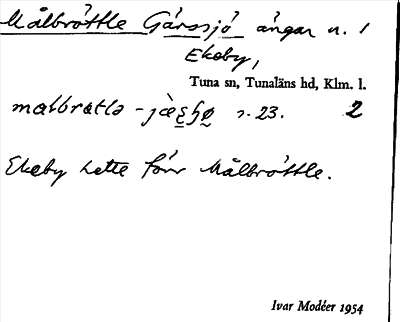 Målbröttle Gärssjö ängar n. 1
Ekeby,
Tuna sn, Tunaläns hd, Klm. l.
s. 23. 2
Ekeby hette förr Målbröttle.
Ivar Modéer 1954